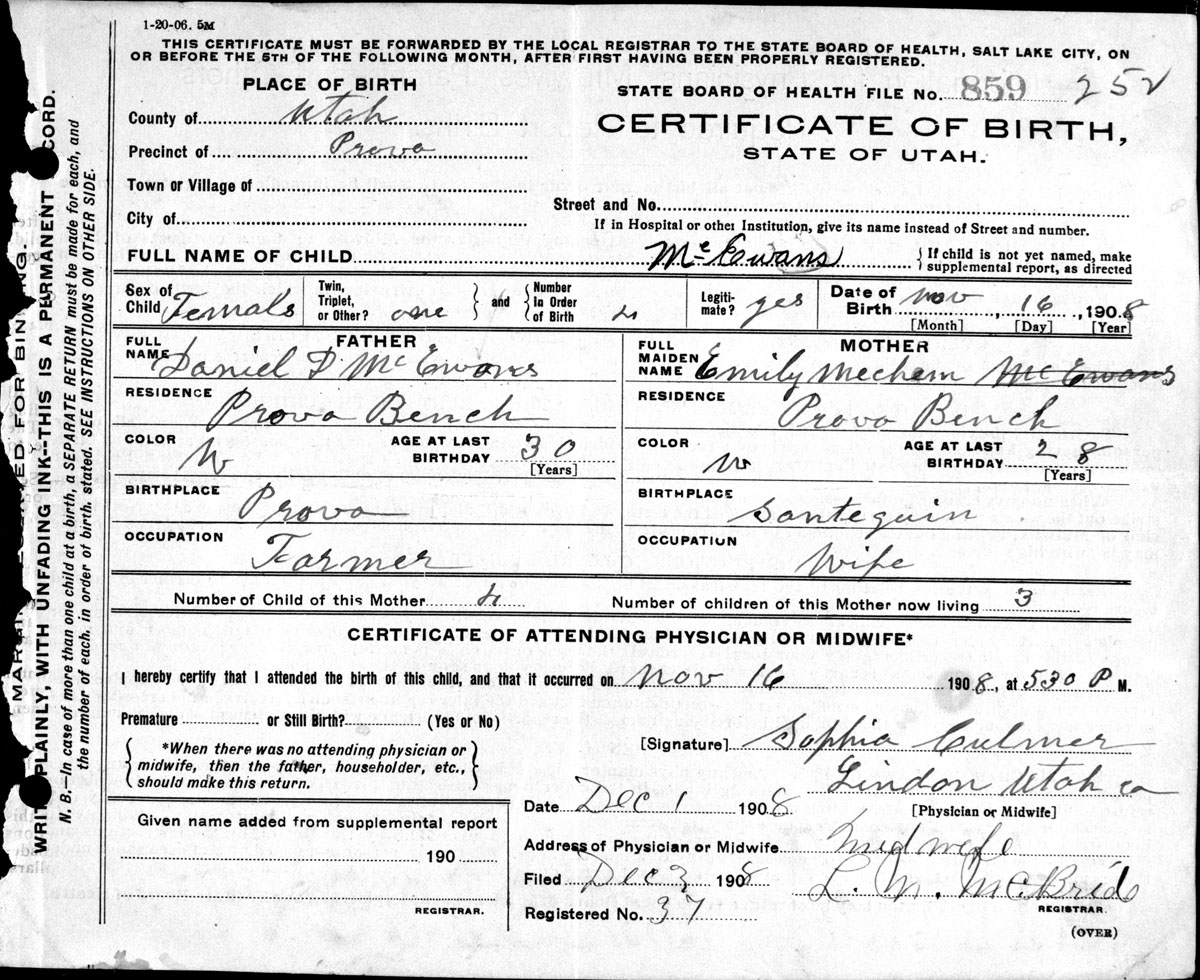 1-20-06. 5M
THIS CERTIFICATE MUST BE FORWARDED BY THE LOCAL REGISTRAR TO THE STATE BOARD OF HEALTH, SALT LAKE CITY, ON
OR BEFORE THE 5TH OF THE FOLLOWING MONTH, AFTER FIRST HAVING BEEN PROPERLY REGISTERED.
PLACE OF BIRTH
STATE BOARD OF HEALTH FILE No. 859 252
County of Utah
CERTIFICATE OF BIRTH,
Precinct of Provo
STATE OF UTAH.
Town or Village of
Street and No.
City of
If in Hospital or other Institution, give its name instead of Street and number.
FULL NAME OF CHILD McEwans { If child is not yet named, make
supplemental report, as directed
Sex of Child Female Twin, Triplet, or Other? one } and { Number In Order of Birth 4 Legiti-mate? yes Date of Birth Nov 16, 1908
[Month] [Day] [Year]
FATHER MOTHER
FULL NAME Daniel D McEwans FULL MAIDEN NAME Emily Mechem McEwans
RESIDENCE Provo Bench RESIDENCE Provo Bench
COLOR W AGE AT LAST BIRTHDAY 30 [Years] COLOR W AGE AT LAST BIRTHDAY 28 [Years]
BIRTHPLACE Provo BIRTHPLACE Santequin
OCCUPATION Farmer OCCUPATION Wife
Number of Child of this Mother 4 Number of children of this Mother now living 3
CERTIFICATE OF ATTENDING PHYSICIAN OR MIDWIFE*
I hereby certify that I attended the birth of this child, and that it occurred on Nov 16 1908, at 530 P M.
Premature or Still Birth? (Yes or No)
*When there was no attending physician or
midwife, then the father, householder, etc.,
should make this return.
[Signature] Sophia Culmer
Lindon Utah co
Date Dec 1 1908 [Physician or Midwife]
Given name added from supplemental report
Address of Physician or Midwife Midwife
190
Filed Dec 3 1908 L. M. McBride
REGISTRAR. REGISTRAR.
Registered No. 37
(OVER)
MARGIN RESERVED FOR BINDING
WRITE PLAINLY, WITH UNFADING INK--THIS IS A PERMANENT RECORD.
N. B.—In case of more than one child at a birth, a SEPARATE RETURN must be made for each, and
the number of each, in order of birth, stated. SEE INSTRUCTIONS ON OTHER SIDE.